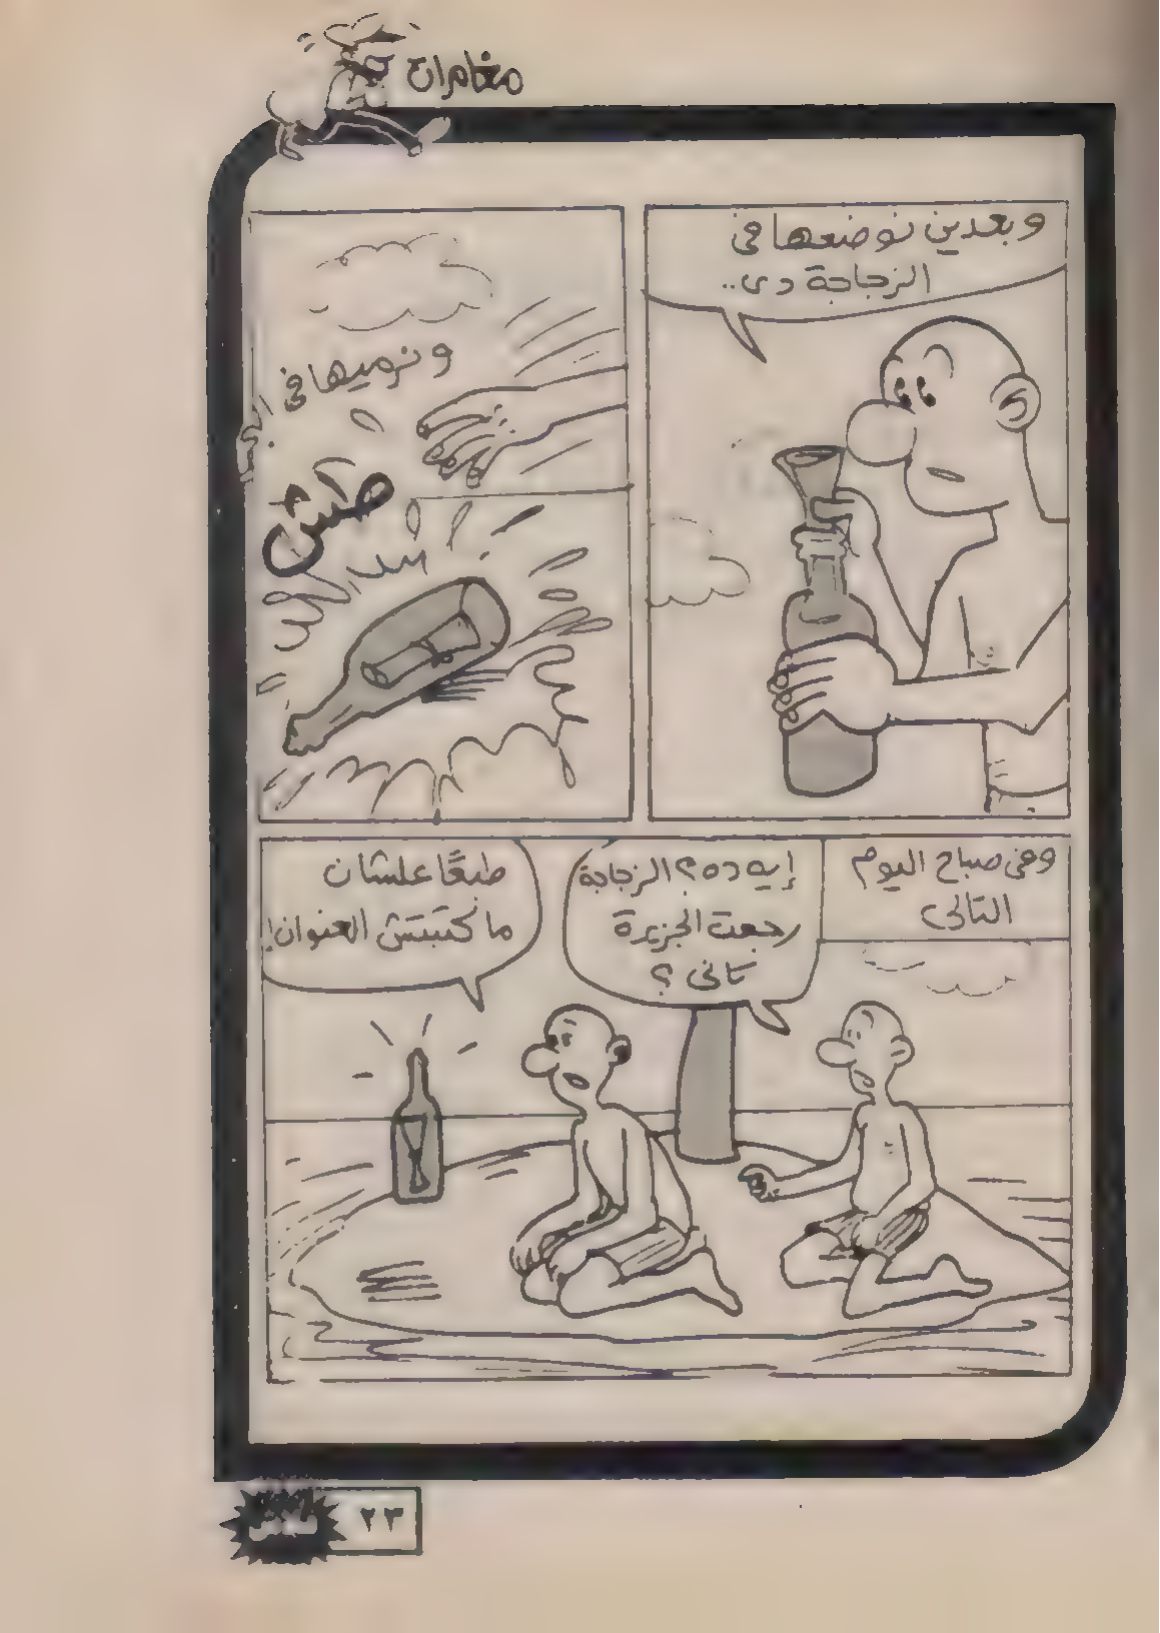 مغامرات
وبعدين نوضعها فى
الزجاجة دى..
ونرميها فى
طش
وفى صباح اليوم
التالى
إيه ده؟ الزجاجة
رجعت الجزيرة
تانى؟
طبعًا علشان
ما كتبتش العنوان!
٢٣